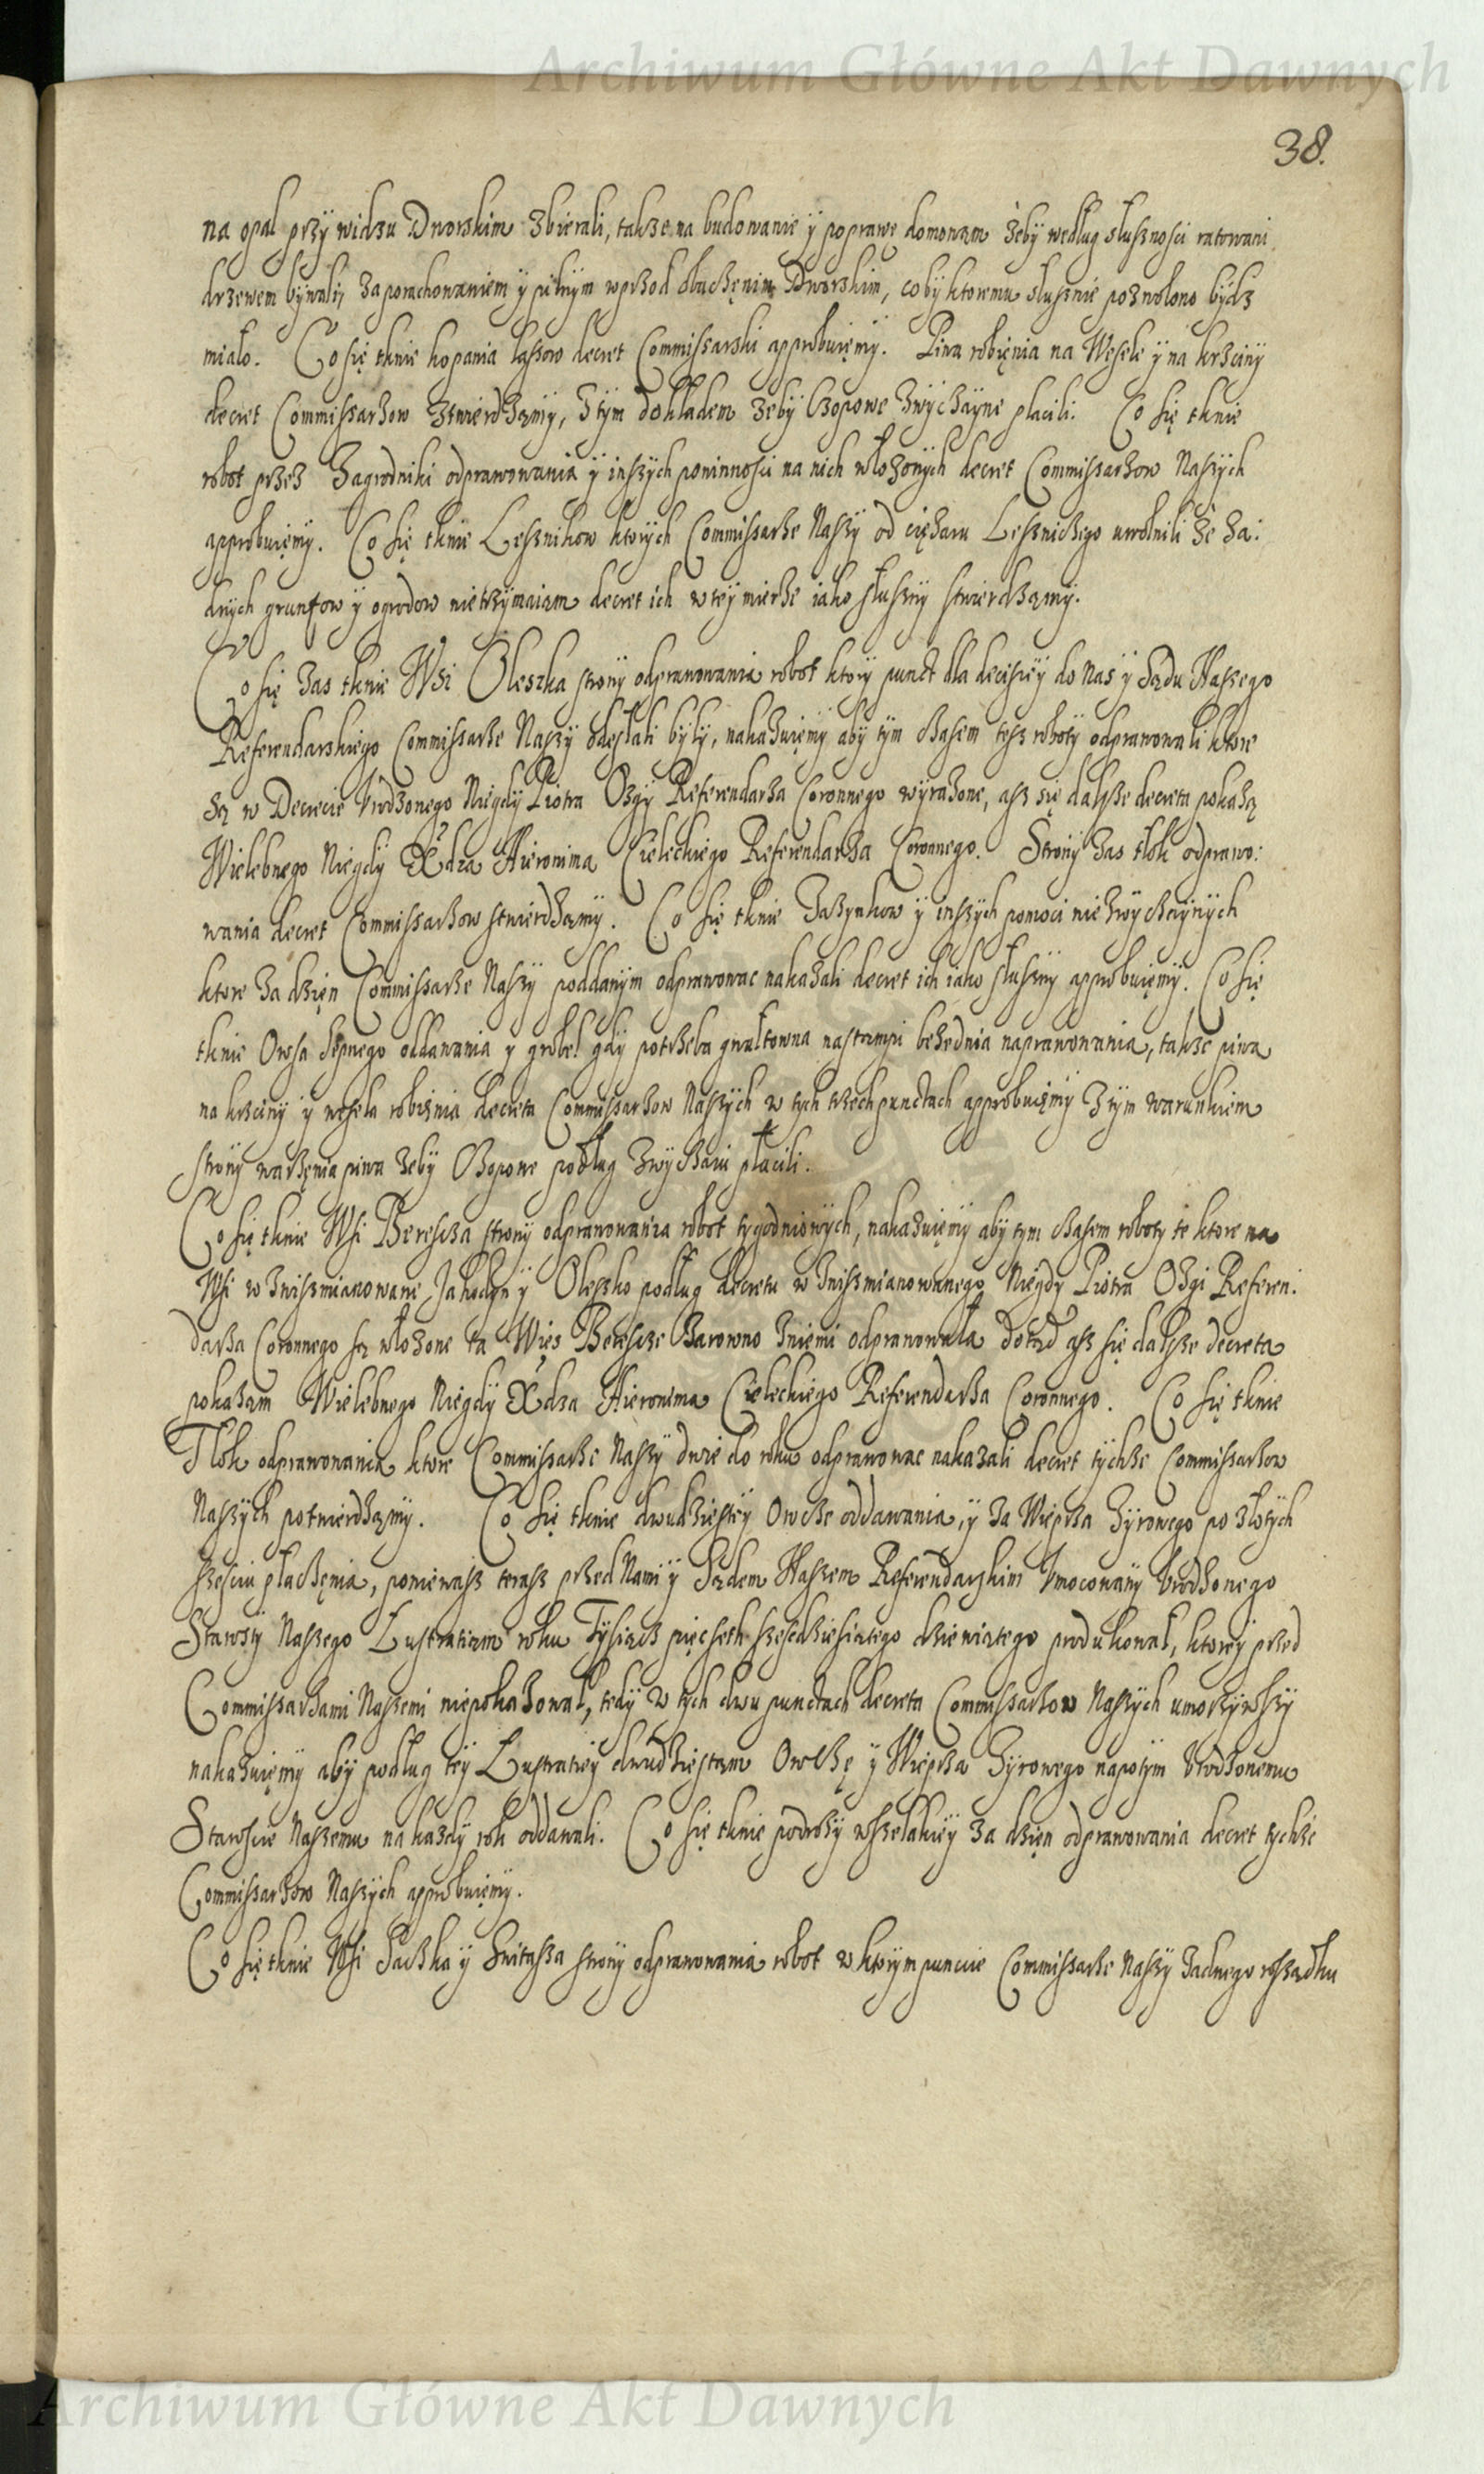 Archiwum Główne Akt Dawnych
38.
na opal przy widzu Dworskim zbierali, także na budowanie ÿ poprawe domowam żeby według słusznosci ratowani
drzewem bÿwali, za porachowaniem ÿ pilnÿm wprzod obaczęnim Dworskim, cobÿ ktoremu slusznie pozwolono bÿdz
miało. Co się tknie kopania lassow decret Commissarski approbuięmÿ. Piwa robięnia na Wesele ÿ na krzcinÿ
decret Commissarzow ztwierdzamÿ, z tÿm dokładem zebÿ Czopowe zwÿczaÿne placili. Co się tknie
robot przez Zagrodniki odprawowania ÿ inszÿch powinnosci na nich włozonÿch decret Commissarzow Naszÿch
approbuięmÿ. Co się tknie Lesznikow ktorÿch Commissarze Naszÿ od ciężaru Leszniczego uwolnili że ża:
dnÿch gruntow ÿ ogrodow nietrzÿmaiam decret ich w teÿ mierze iako słusznÿ stwierdzamÿ.
Co się zas tknie Wsi Oleszka stronÿ odprawowania robot ktorÿ punct dla decisieÿ do Nas ÿ Sądu Naszego
Referendarskiego Commissarze Naszÿ odesłali bÿlÿ, nakazuięmÿ abÿ tÿm czasem tesz robotÿ odprawowali ktore
są w Decrecie Vrodzonego Niegdÿ Piotra Ozgÿ Referendarza Coronnego wÿrazone, asz się dalsze decreta pokażą
Wielebnego Niegdÿ Xdza Hieronima Cieleckiego Referendarza Coronnego. Stronÿ zas tłok odprawo:
wania decret Commissarzow stwierdzamÿ. Co się tknie Zazÿnkow ÿ inszÿch pomoci niezwÿczaÿnÿch
ktore za dzięn Commissarze Naszÿ poddanÿm odprawowac nakazali decret ich iako słusznÿ approbuięmÿ. Co się
tknie Owsa sepnego oddawania y grobel gdÿ potrzeba gwałtowna nastampi bezednia naprawowania, także piwa
na krzcinÿ ÿ wesela robięnia decreta Commissarzow Naszÿch w tÿch trzech punctach approbuięmÿ z tÿm warunkiem
stronÿ warzęnia piwa zebÿ Czopowe podług zwÿczaiu płacili.
Co się tknie Wsi Berescza stronÿ odprawowania robot tÿgodniowÿch, nakazuięmÿ abÿ tÿm czasem robotÿ te ktore na
Wsi w zwiszmianowane Jahodÿn ÿ Oleszko podług decretu w zwiszmianowanego Niegdÿ Piotra Ozgi Referen:
darza Coronnego są włozone ta Wies Berescze zarowno z niemi odprawowała dotąd asz się dalsze decreta
pokażam Wielebnego Niegdÿ Xdza Hieronima Cieleckiego Referendarza Coronnego. Co się tknie
Tlok odprawowania ktore Commissarze Naszÿ dwie do roku odprawowac nakazali decret tÿchze Commissarzow
Naszÿch potwierdzamÿ. Co się tknie dwudziesteÿ Owcze oddawania, ÿ za Wieprza Zÿrowego po złotÿch
sześciu płaczęnia, poniewasz terasz przed Nami ÿ Sądem Naszem Referendarskim Vmocowanÿ Vrodzonego
Starostÿ Naszego Lustratiam roku Tÿsiącz pięcseth szescdziesiatego dziewiatego produkował, ktoreÿ przed
Commissarzami Naszemi niepokazował, tedÿ w tÿch dwu punctach decreta Commissarzow Naszÿch umorzÿwszÿ
nakazuięmÿ abÿ podług teÿ Lustratieÿ dwudziestam Owczę ÿ Wieprza Zÿrowego napotÿm Vrodzonemu
Staroscie Naszemu na kazdÿ rok oddawali. Co się tknie podrozÿ wszelakieÿ za dzięn odprawowania decret tÿchze
Commissarzow Naszÿch approbuięmÿ.
Co się tknie Wsi Paczka ÿ Snitasza stronÿ odprawowania robot w ktorÿm puncie Commissarze Naszÿ zadnego rossadku
Archiwum Główne Akt Dawnych